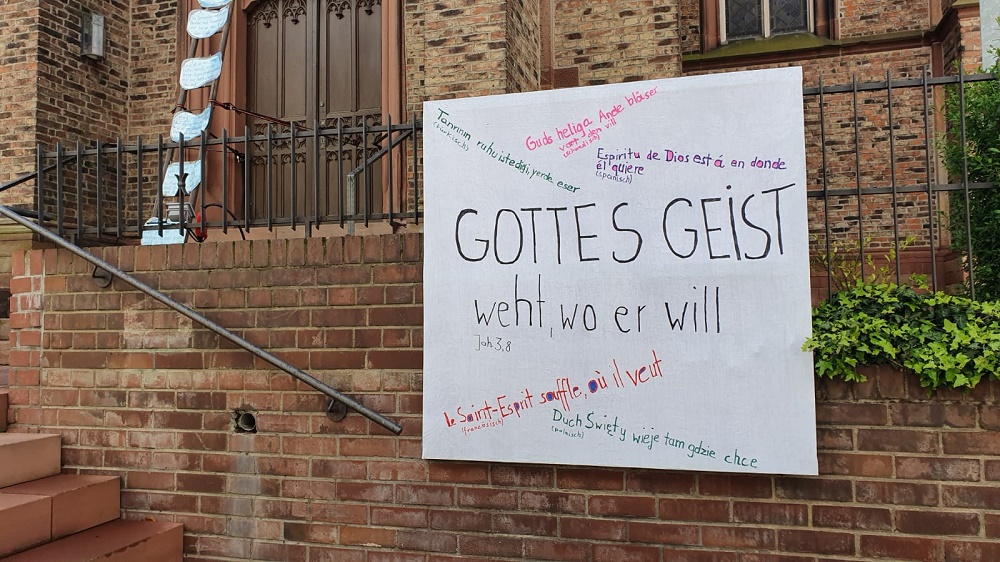 Tanrının ruhu istediği, yerde eser
(türkisch)
Guds heliga Ande blåser
vart den vill
(schwedisch)
Espiritu de Dios está en donde
él quiere
(spanisch)
GOTTES GEIST
weht, wo er will
Joh 3,8
le Saint-Esprit souffle, où il veut
(französisch)
Duch Święty wieje tam gdzie chce
(polnisch)